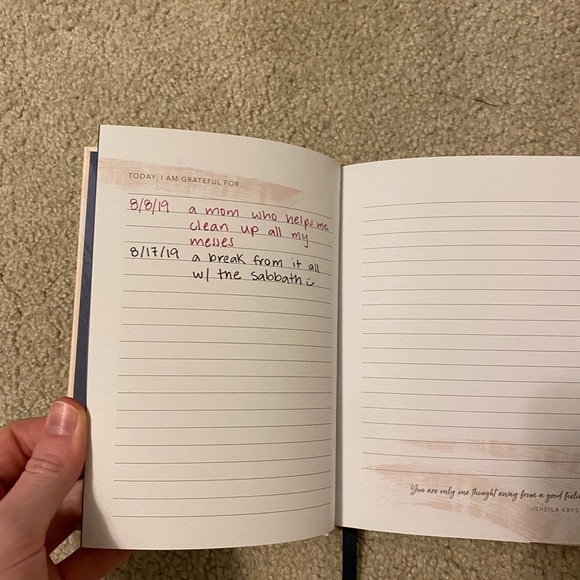 TODAY, I AM GRATEFUL FOR...
8/8/19 a mom who helps me
clean up all my
messes
8/17/19 a break from it all
w/ the sabbath
You are only one thought away from a good
–SHEILA